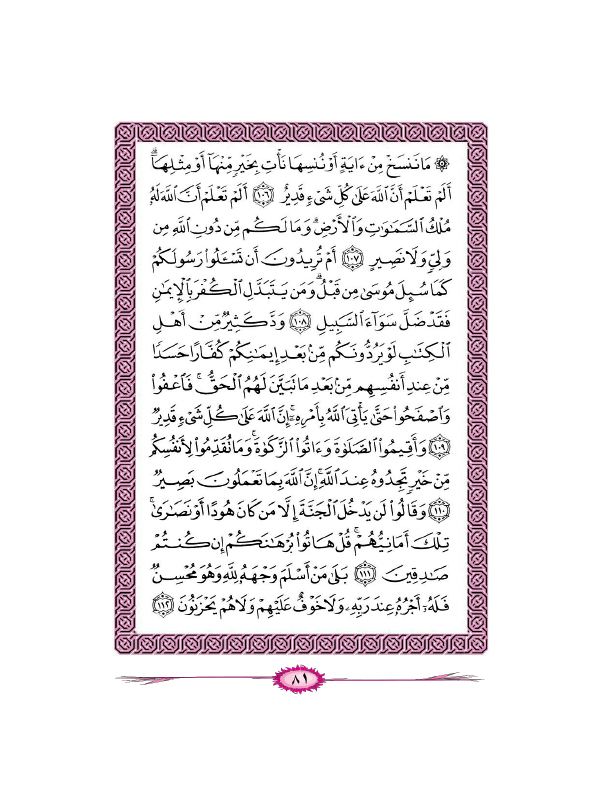 ۞ مَا نَنسَخۡ مِنۡ ءَايَةٍ أَوۡ نُنسِهَا نَأۡتِ بِخَيۡرٖ مِّنۡهَآ أَوۡ مِثۡلِهَآۗ
أَلَمۡ تَعۡلَمۡ أَنَّ ٱللَّهَ عَلَىٰ كُلِّ شَيۡءٖ قَدِيرٌ ١٠٦ أَلَمۡ تَعۡلَمۡ أَنَّ ٱللَّهَ لَهُۥ
مُلۡكُ ٱلسَّمَٰوَٰتِ وَٱلۡأَرۡضِۗ وَمَا لَكُم مِّن دُونِ ٱللَّهِ مِن
وَلِيّٖ وَلَا نَصِيرٍ ١٠٧ أَمۡ تُرِيدُونَ أَن تَسۡـَٔلُواْ رَسُولَكُمۡ
كَمَا سُئِلَ مُوسَىٰ مِن قَبۡلُۗ وَمَن يَتَبَدَّلِ ٱلۡكُفۡرَ بِٱلۡإِيمَٰنِ
فَقَدۡ ضَلَّ سَوَآءَ ٱلسَّبِيلِ ١٠٨ وَدَّ كَثِيرٞ مِّنۡ أَهۡلِ
ٱلۡكِتَٰبِ لَوۡ يَرُدُّونَكُم مِّنۢ بَعۡدِ إِيمَٰنِكُمۡ كُفَّارًا حَسَدٗا
مِّنۡ عِندِ أَنفُسِهِم مِّنۢ بَعۡدِ مَا تَبَيَّنَ لَهُمُ ٱلۡحَقُّۖ فَٱعۡفُواْ
وَٱصۡفَحُواْ حَتَّىٰ يَأۡتِيَ ٱللَّهُ بِأَمۡرِهِۦٓۗ إِنَّ ٱللَّهَ عَلَىٰ كُلِّ شَيۡءٖ قَدِيرٞ
١٠٩ وَأَقِيمُواْ ٱلصَّلَوٰةَ وَءَاتُواْ ٱلزَّكَوٰةَۚ وَمَا تُقَدِّمُواْ لِأَنفُسِكُم
مِّنۡ خَيۡرٖ تَجِدُوهُ عِندَ ٱللَّهِۗ إِنَّ ٱللَّهَ بِمَا تَعۡمَلُونَ بَصِيرٞ
١١٠ وَقَالُواْ لَن يَدۡخُلَ ٱلۡجَنَّةَ إِلَّا مَن كَانَ هُودًا أَوۡ نَصَٰرَىٰۗ
تِلۡكَ أَمَانِيُّهُمۡۗ قُلۡ هَاتُواْ بُرۡهَٰنَكُمۡ إِن كُنتُمۡ
صَٰدِقِينَ ١١١ بَلَىٰۚ مَنۡ أَسۡلَمَ وَجۡهَهُۥ لِلَّهِ وَهُوَ مُحۡسِنٞ
فَلَهُۥٓ أَجۡرُهُۥ عِندَ رَبِّهِۦ وَلَا خَوۡفٌ عَلَيۡهِمۡ وَلَا هُمۡ يَحۡزَنُونَ ١١٢
٨١